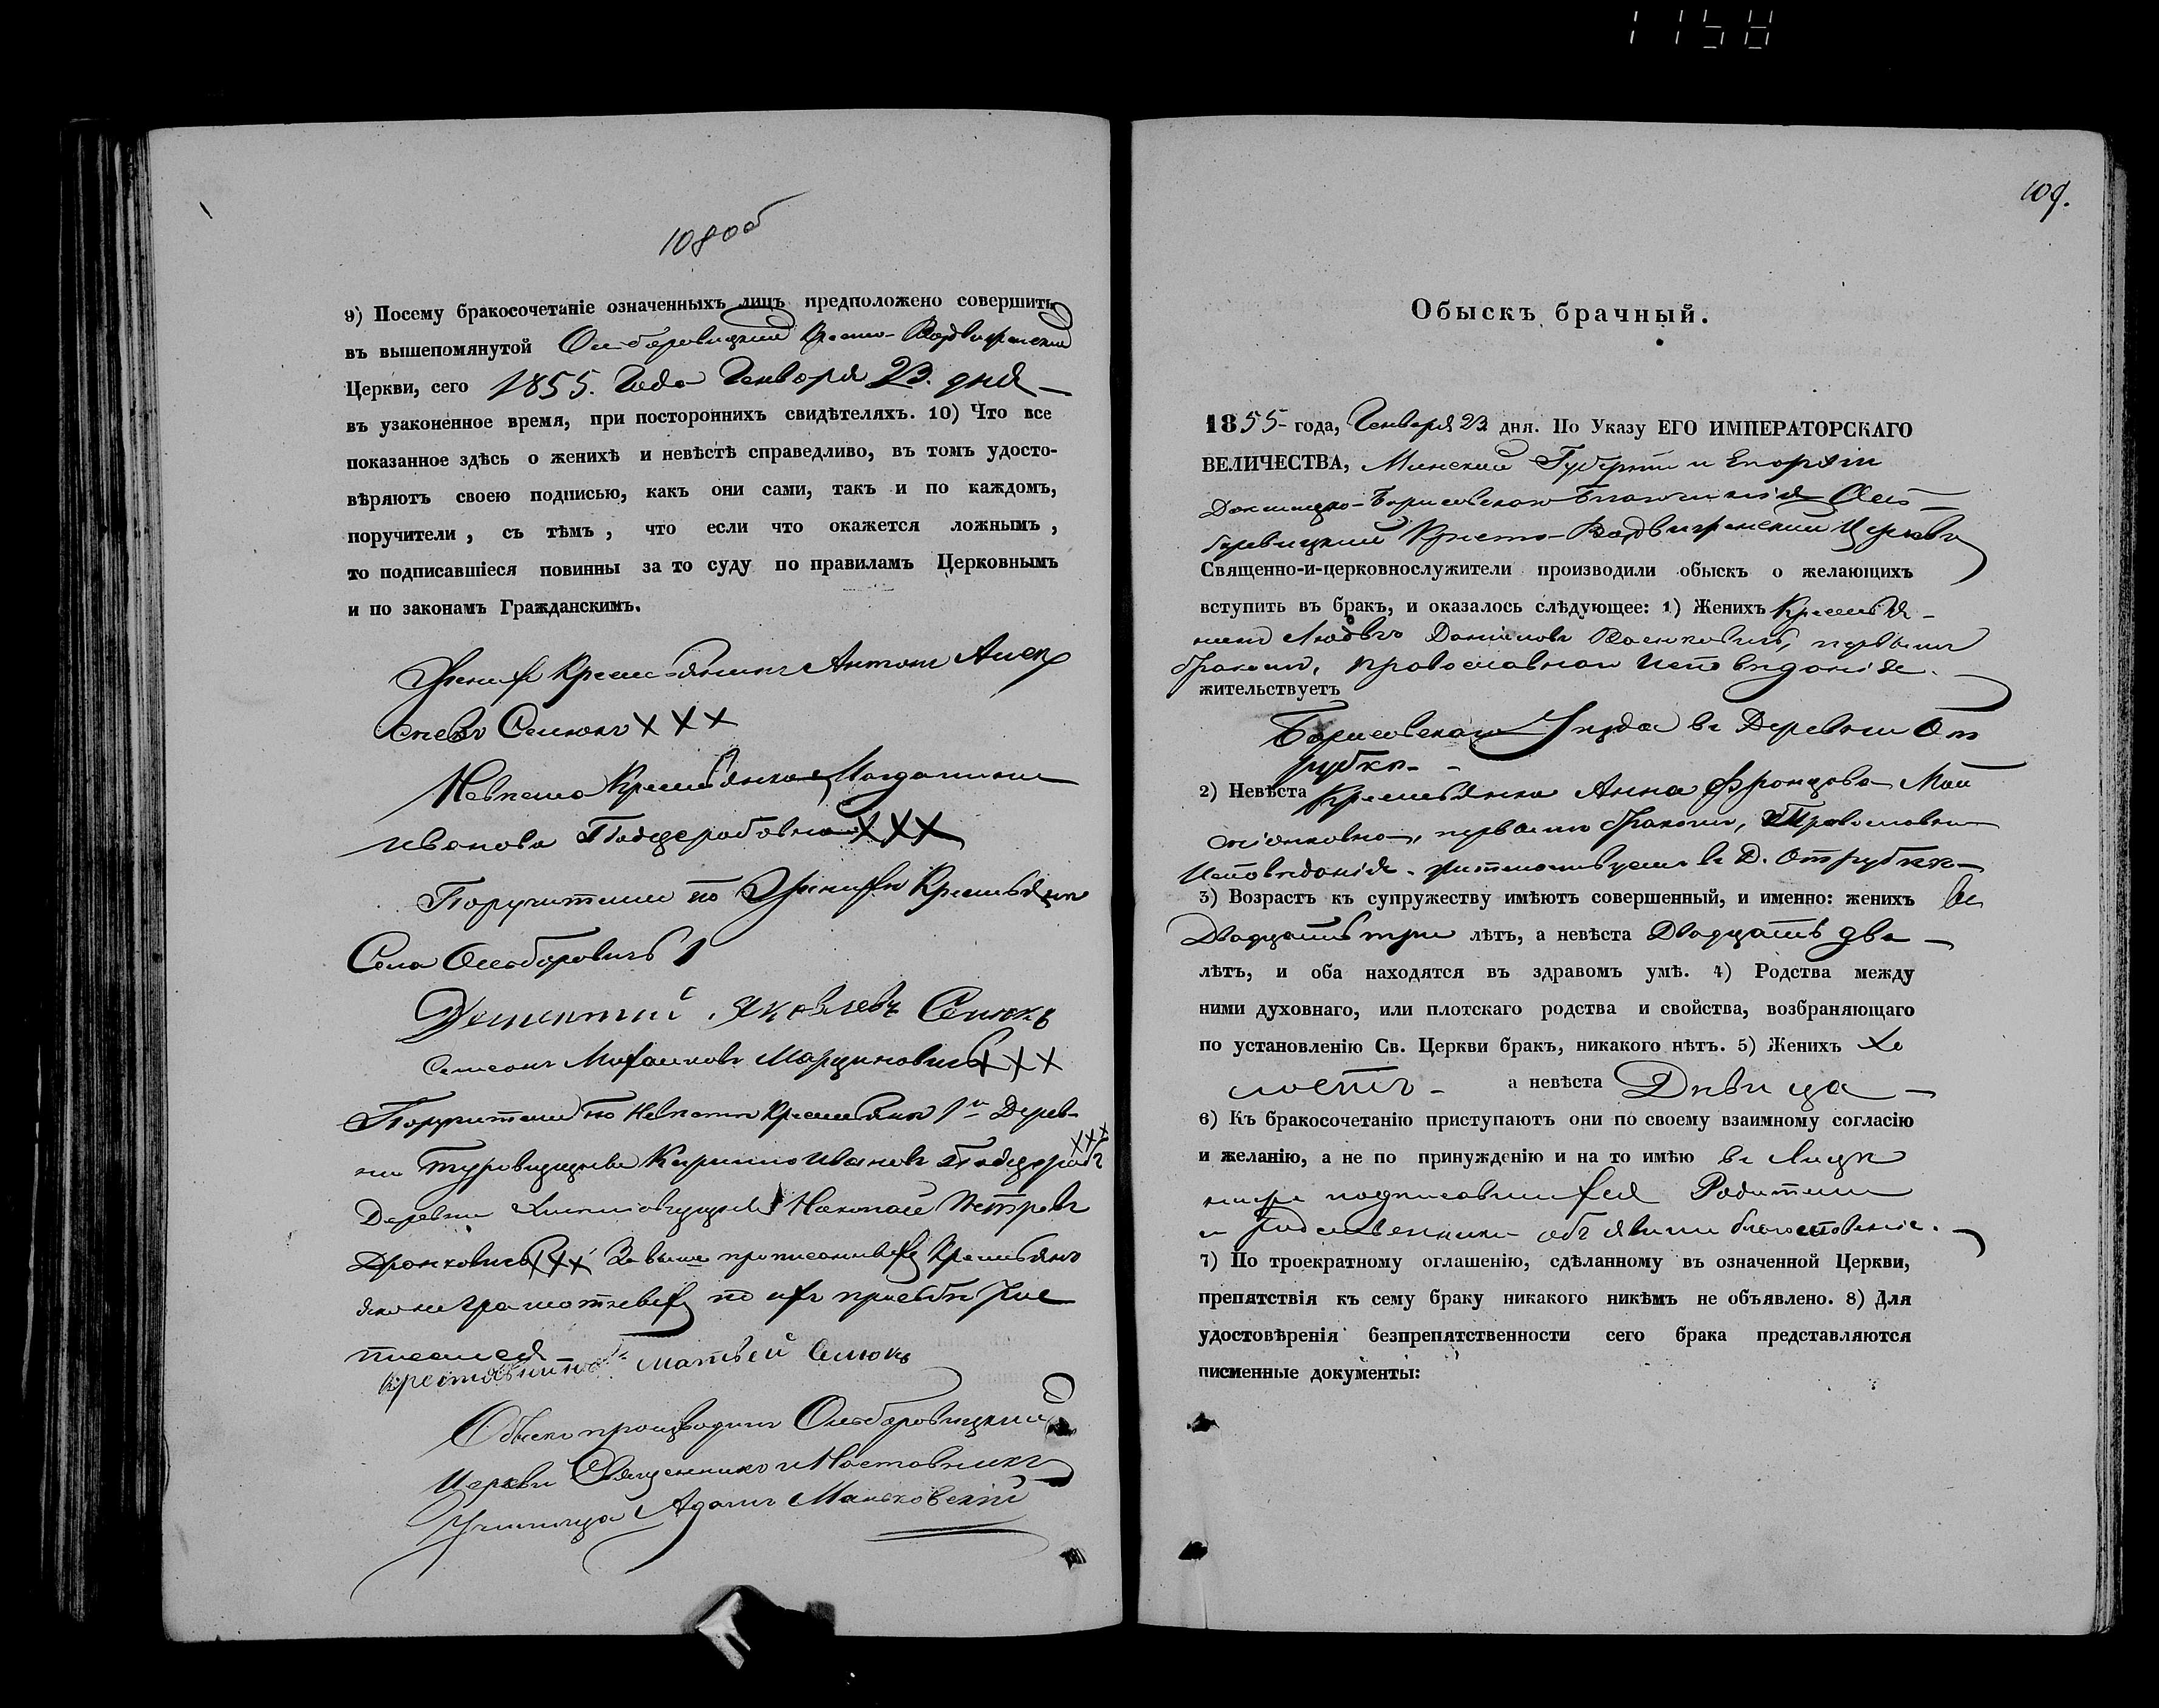 1158
108об
9) Посему бракосочетаніе означенныхъ лицъ предположено совершить
въ вышепомянутой Ольборовицкой Кресто-Воздвиженской
Церкви, сего 1855. Года Генваря 23. дня
въ узаконенное время, при постороннихъ свидѣтеляхъ. 10) Что все
показанное здѣсь о женихѣ и невѣстѣ справедливо, въ томъ удосто-
вѣряютъ своею подписью, какъ они сами, такъ и по каждомъ,
поручители, съ тѣмъ, что если что окажется ложнымъ,
то подписавшіеся повинны за то суду по правиламъ Церковнымъ
и по законамъ Гражданскимъ.
Женихъ Крестьянинъ Антонъ Алек
Семокъ XXX
Невѣста Крестьянка Магдалина
Иванова XXX
Поручители по Женихѣ Крестьяне
Села Ольборовичь
Дементий Яковлевъ Семюкъ
Семіонъ Михайловъ Марциновичь XXX
Поручители по Невѣстѣ Крестьяне 1й Дерев-
ни Кирилло Ивановъ XXX
Деревни Николай Петровъ
Дронковичь XXX За выше прописанныхъ Крестьянъ
яко неграмотныхъ по ихъ прозбѣ рос
писался
Матвей Семюкъ
Обыскъ производилъ Ольборовицкий
Церкви Священникъ и Наставникъ
Училища Адамъ Маньковский
109.
Обыскъ брачный.
1855 года, Генваря 23 дня. По Указу ЕГО ИМПЕРАТОРСКАГО
ВЕЛИЧЕСТВА, Минской Губерніи и Епархіи
Докшицко-Борисовскаго Благочинія Оль-
боровицкой Кресто-Воздвиженской Церкви
Священно-и-церковнослужители производили обыскъ о желающихъ
вступить въ бракъ, и оказалось слѣдующее: 1) Женихъ Крестья-
нинъ Даніиловъ первымъ
бракомъ, православнаго исповѣданія.
жительствуетъ
Борисовскаго Уѣзда въ Деревни От
рубкѣ
2) Невѣста Крестьянка Анна Францова
первымъ бракомъ, Православнаго
Исповѣданія. жительствуетъ въ Д. Отрубкахъ
3) Возрастъ къ супружеству имѣютъ совершенный, и именно: женихъ
Двадцать три лѣтъ, а невѣста Двадцать два
лѣтъ, и оба находятся въ здравомъ умѣ. 4) Родства между
ними духовнаго, или плотскаго родства и свойства, возбраняющаго
по установленію Св. Церкви бракъ, никакого нѣтъ. 5) Женихъ Хо
лостъ а невѣста Дѣвица
6) Къ бракосочетанію приступаютъ они по своему взаимному согласію
и желанію, а не по принужденію и на то имѣю въ Лицѣ
ниже подписавшихся Родители
и родственники объявили благословеніе.
7) По троекратному оглашенію, сдѣланному въ означенной Церкви,
препятствія къ сему браку никакого никѣмъ не объявлено. 8) Для
удостовѣренія безпрепятственности сего брака представляются
писменные документы: